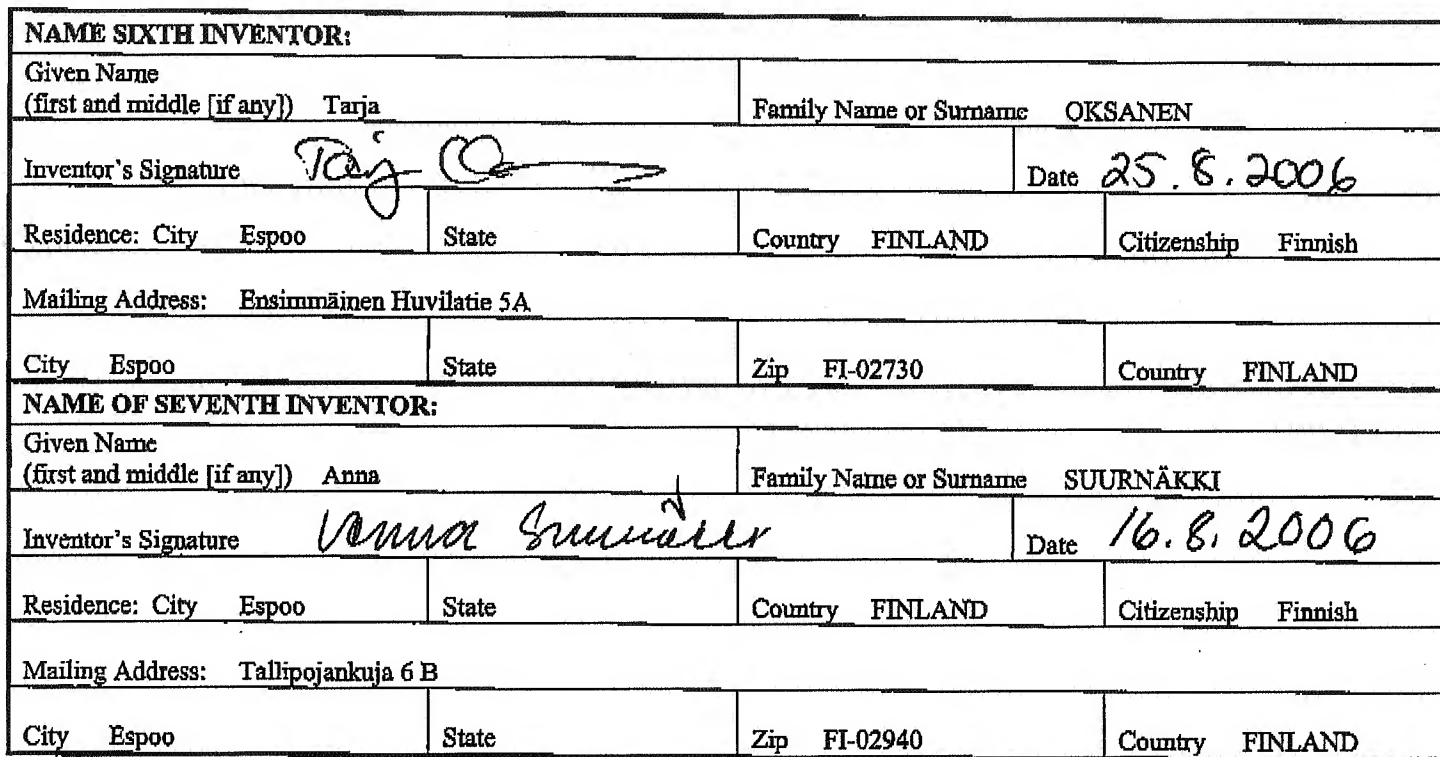 NAME SIXTH INVENTOR:
Given Name
(first and middle [if any]) Tarja Family Name or Surname OKSANEN
Inventor's Signature Date 25.8.2006
Residence: City Espoo State Country FINLAND Citizenship Finnish
Mailing Address: Ensimmäinen Huvilatie 5A
City Espoo State Zip FI-02730 Country FINLAND
NAME OF SEVENTH INVENTOR:
Given Name
(first and middle [if any]) Anna Family Name or Surname SUURNÄKKI
Inventor's Signature Anna Suurnäkki Date 16.8.2006
Residence: City Espoo State Country FINLAND Citizenship Finnish
Mailing Address: Tallipojankuja 6 B
City Espoo State Zip FI-02940 Country FINLAND